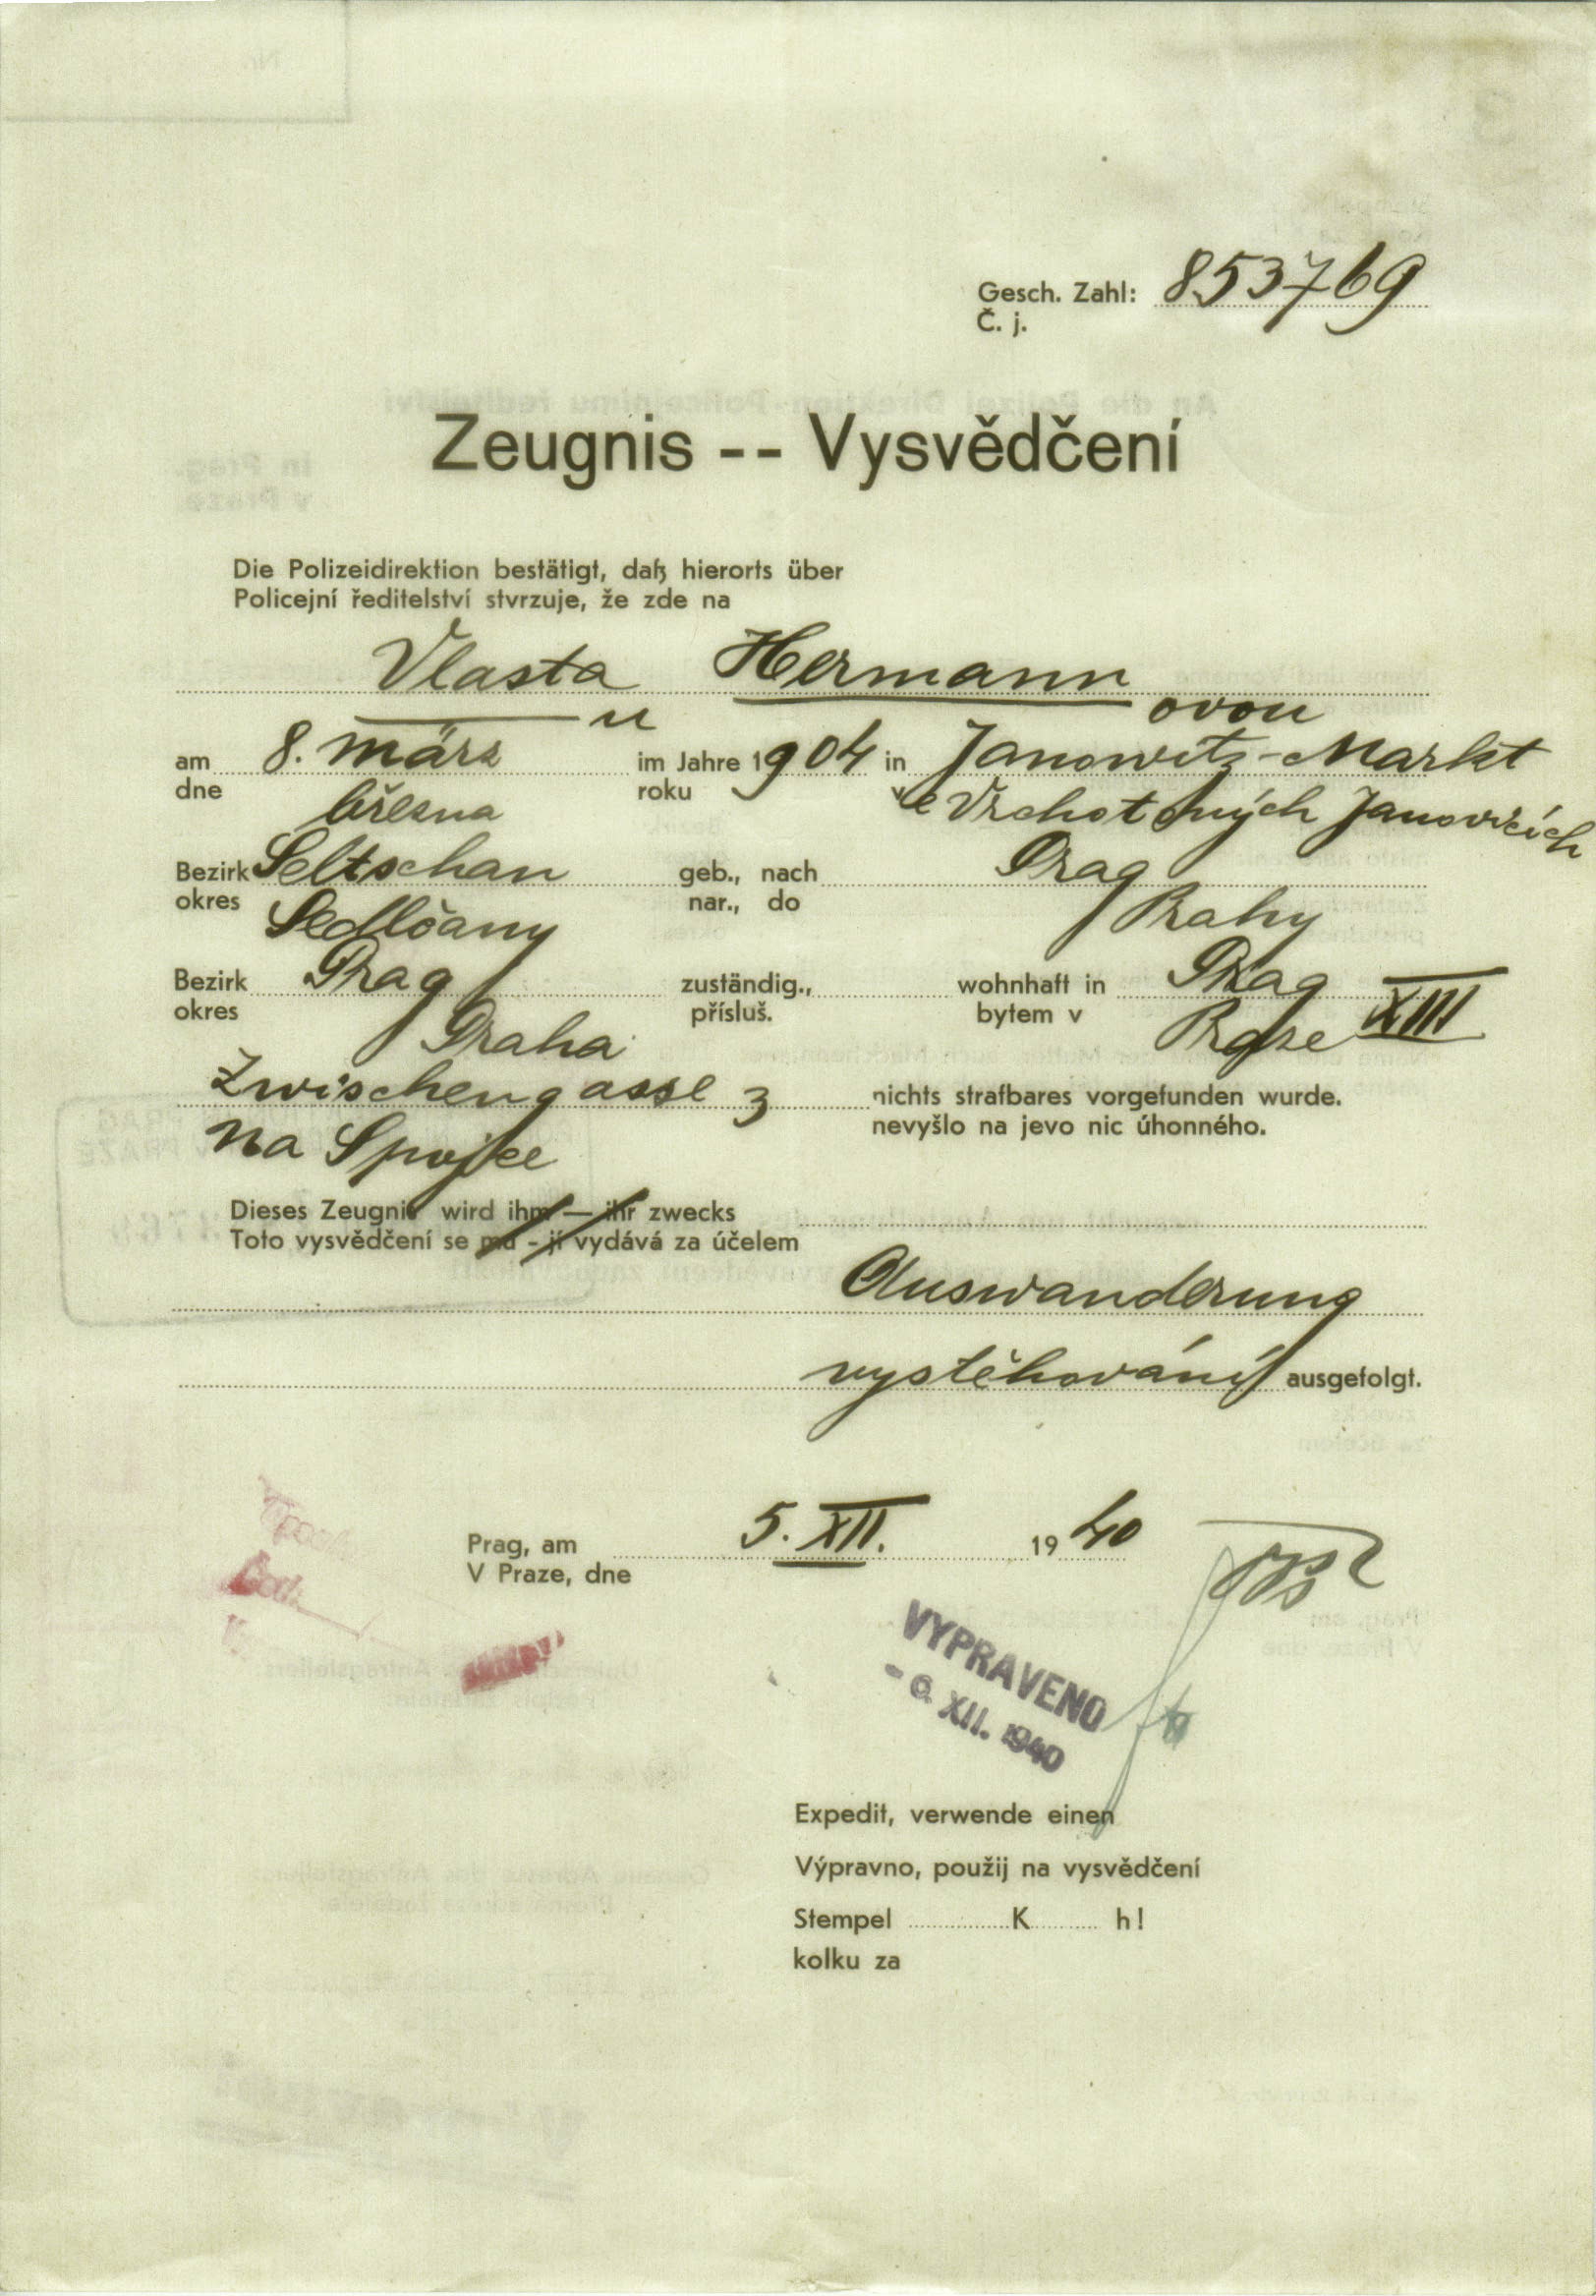 Gesch. Zahl: 853769
Č. j.
Zeugnis -- Vysvědčení
Die Polizeidirektion bestätigt, daß hierorts über
Policejní ředitelství stvrzuje, že zde na
Vlasta Hermann
u ovou
am 8. März im Jahre 1904 in Janowitz-Markt
dne března roku ve Vrchotových Janovicích
Bezirk Seltschan geb., nach Prag
okres Sedlčany nar., do Prahy
Bezirk Prag zuständig., wohnhaft in Prag XIII
okres Praha přísluš. bytem v Praze
Zwischengasse 3 nichts strafbares vorgefunden wurde.
Na Spojce nevyšlo na jevo nic úhonného.
Dieses Zeugnis wird ihm — ihr zwecks
Toto vysvědčení se mu - jí vydává za účelem
Auswanderung
vystěhování ausgefolgt.
Prag, am 5. XII. 1940
V Praze, dne
VYPRAVENO
- 6. XII. 1940
Expedit, verwende einen
Výpravno, použij na vysvědčení
Stempel K h!
kolku za